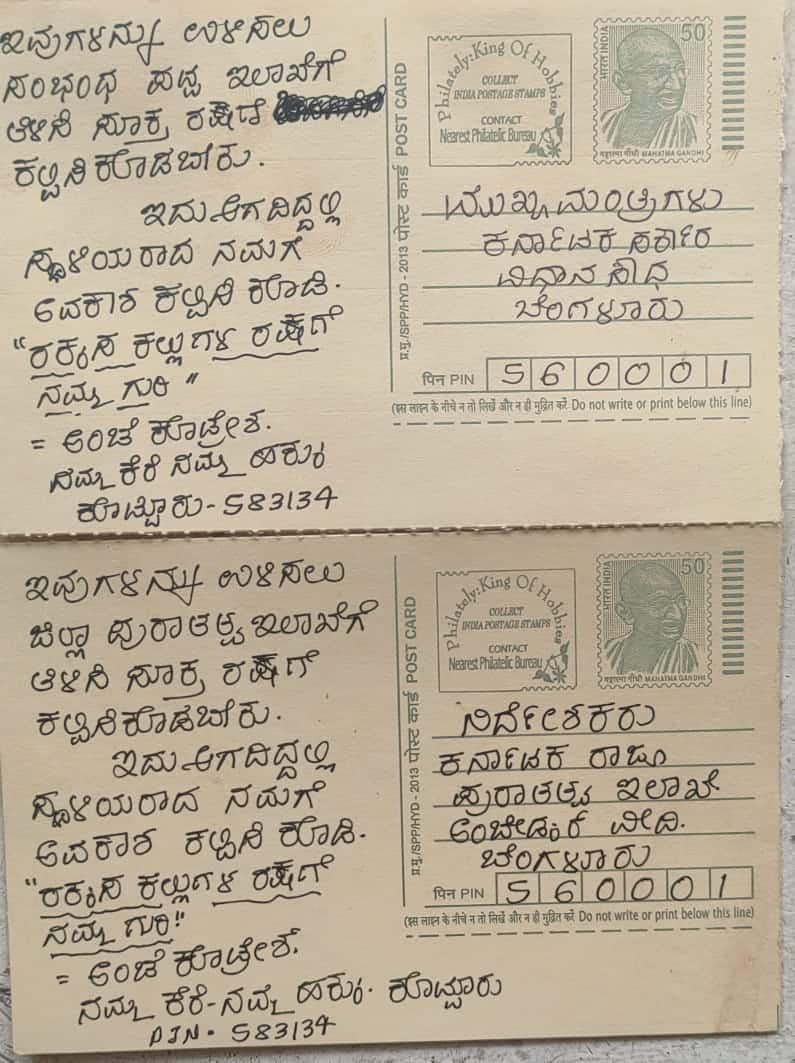 ಇವುಗಳನ್ನು ಉಳಿಸಲು
ಸಂಭಂಧ ಪಟ್ಟ ಇಲಾಖೆಗೆ
ತಿಳಿಸಿ ಸೂಕ್ತ ರಕ್ಷಣೆ
ಕಲ್ಪಿಸಿಕೊಡಬೇಕು.
ಇದು ಆಗದಿದ್ದಲ್ಲಿ
ಸ್ಥಳಿಯರಾದ ನಮಗೆ
ಅವಕಾಶ ಕಲ್ಪಿಸಿ ಕೊಡಿ.
“ರಕ್ಕಸ ಕಲ್ಲುಗಳ ರಕ್ಷಣೆಗೆ
ನಮ್ಮ ಗುರಿ”
= ಅಂಚೆ ಕೊಟ್ರೇಶ.
ನಮ್ಮ ಕೆರೆ ನಮ್ಮ ಹಕ್ಕು
ಕೊಟ್ಟೂರು-583134
प्र.मु./SPP/HYD - 2013 पोस्ट कार्ड POST CARD
Philately: King Of Hobbies
COLLECT
INDIA POSTAGE STAMPS
CONTACT
Nearest Philatelic Bureau
भारत INDIA
50
महात्मा गाँधी MAHATMA GANDHI
ಮುಖ್ಯಮಂತ್ರಿಗಳು
ಕರ್ನಾಟಕ ಸರ್ಕಾರ
ವಿಧಾನ ಸೌಧ
ಬೆಂಗಳೂರು
पिन PIN 560001
(इस लाइन के नीचे न तो लिखें और न ही मुद्रित करें Do not write or print below this line)
ಇವುಗಳನ್ನು ಉಳಿಸಲು
ಜಿಲ್ಲಾ ಪುರಾತತ್ವ ಇಲಾಖೆಗೆ
ತಿಳಿಸಿ ಸೂಕ್ತ ರಕ್ಷಣೆಗೆ
ಕಲ್ಪಿಸಿಕೊಡಬೇಕು.
ಇದು ಆಗದಿದ್ದಲ್ಲಿ
ಸ್ಥಳಿಯರಾದ ನಮಗೆ
ಅವಕಾಶ ಕಲ್ಪಿಸಿ ಕೊಡಿ.
“ರಕ್ಕಸ ಕಲ್ಲುಗಳ ರಕ್ಷಣೆಗೆ
ನಮ್ಮ ಗುರಿ"
= ಅಂಚೆ ಕೊಟ್ರೇಶ.
ನಮ್ಮ ಕೆರೆ-ನಮ್ಮ ಹಕ್ಕು. ಕೊಟ್ಟೂರು
PIN. 583134
प्र.मु./SPP/HYD - 2013 पोस्ट कार्ड POST CARD
Philately: King Of Hobbies
COLLECT
INDIA POSTAGE STAMPS
CONTACT
Nearest Philatelic Bureau
भारत INDIA
50
महात्मा गाँधी MAHATMA GANDHI
ನಿರ್ದೇಶಕರು
ಕರ್ನಾಟಕ ರಾಜ್ಯ
ಪುರಾತತ್ವ ಇಲಾಖೆ
ಅಂಬೇಡ್ಕರ ವೀದಿ.
ಬೆಂಗಳೂರು
पिन PIN 560001
(इस लाइन के नीचे न तो लिखें और न ही मुद्रित करें Do not write or print below this line)